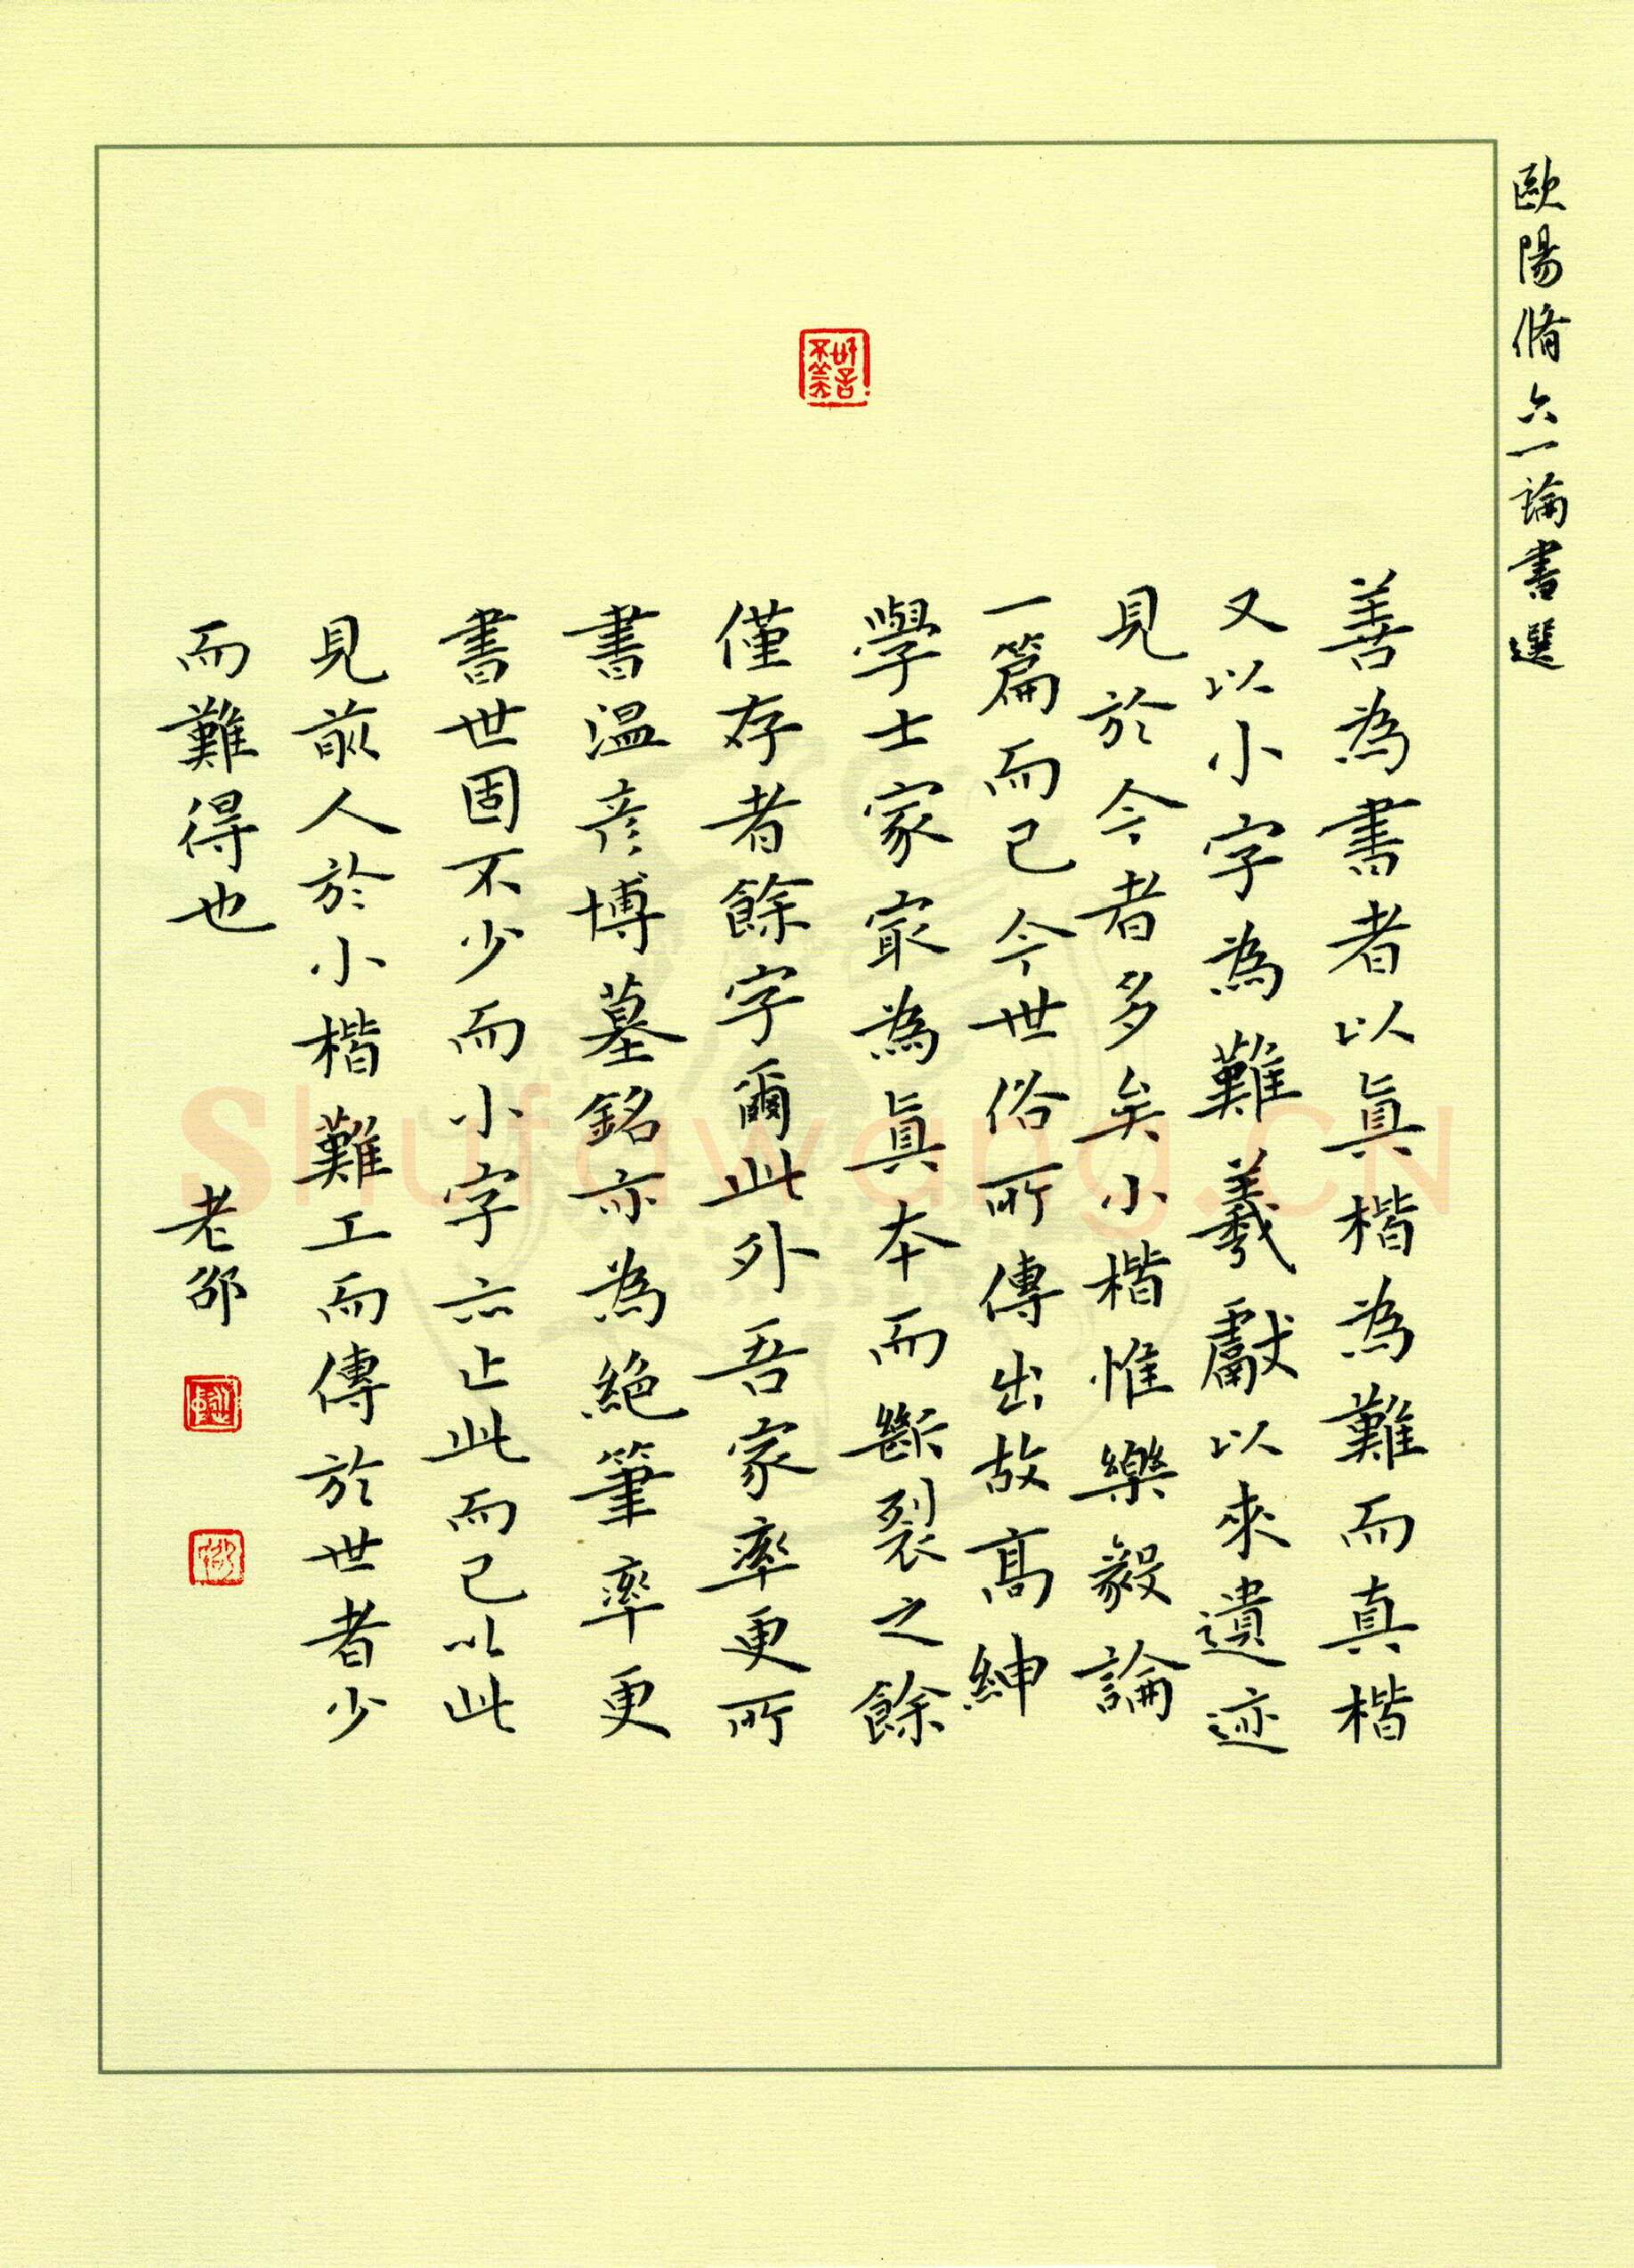 歐陽脩六一論書選
善為書者以真楷為難而真楷
又以小字為難羲獻以來遺迹
見於今者多矣小楷惟樂毅論
一篇而已今世俗所傳出故高紳
學士家最為真本而斷裂之餘
僅存者餘字爾此外吾家率更所
書溫彥博墓銘亦為絕筆率更
書世固不少而小字亦止此而已以此
見前人於小楷難工而傳於世者少
而難得也
老邵
Shufawang.CN